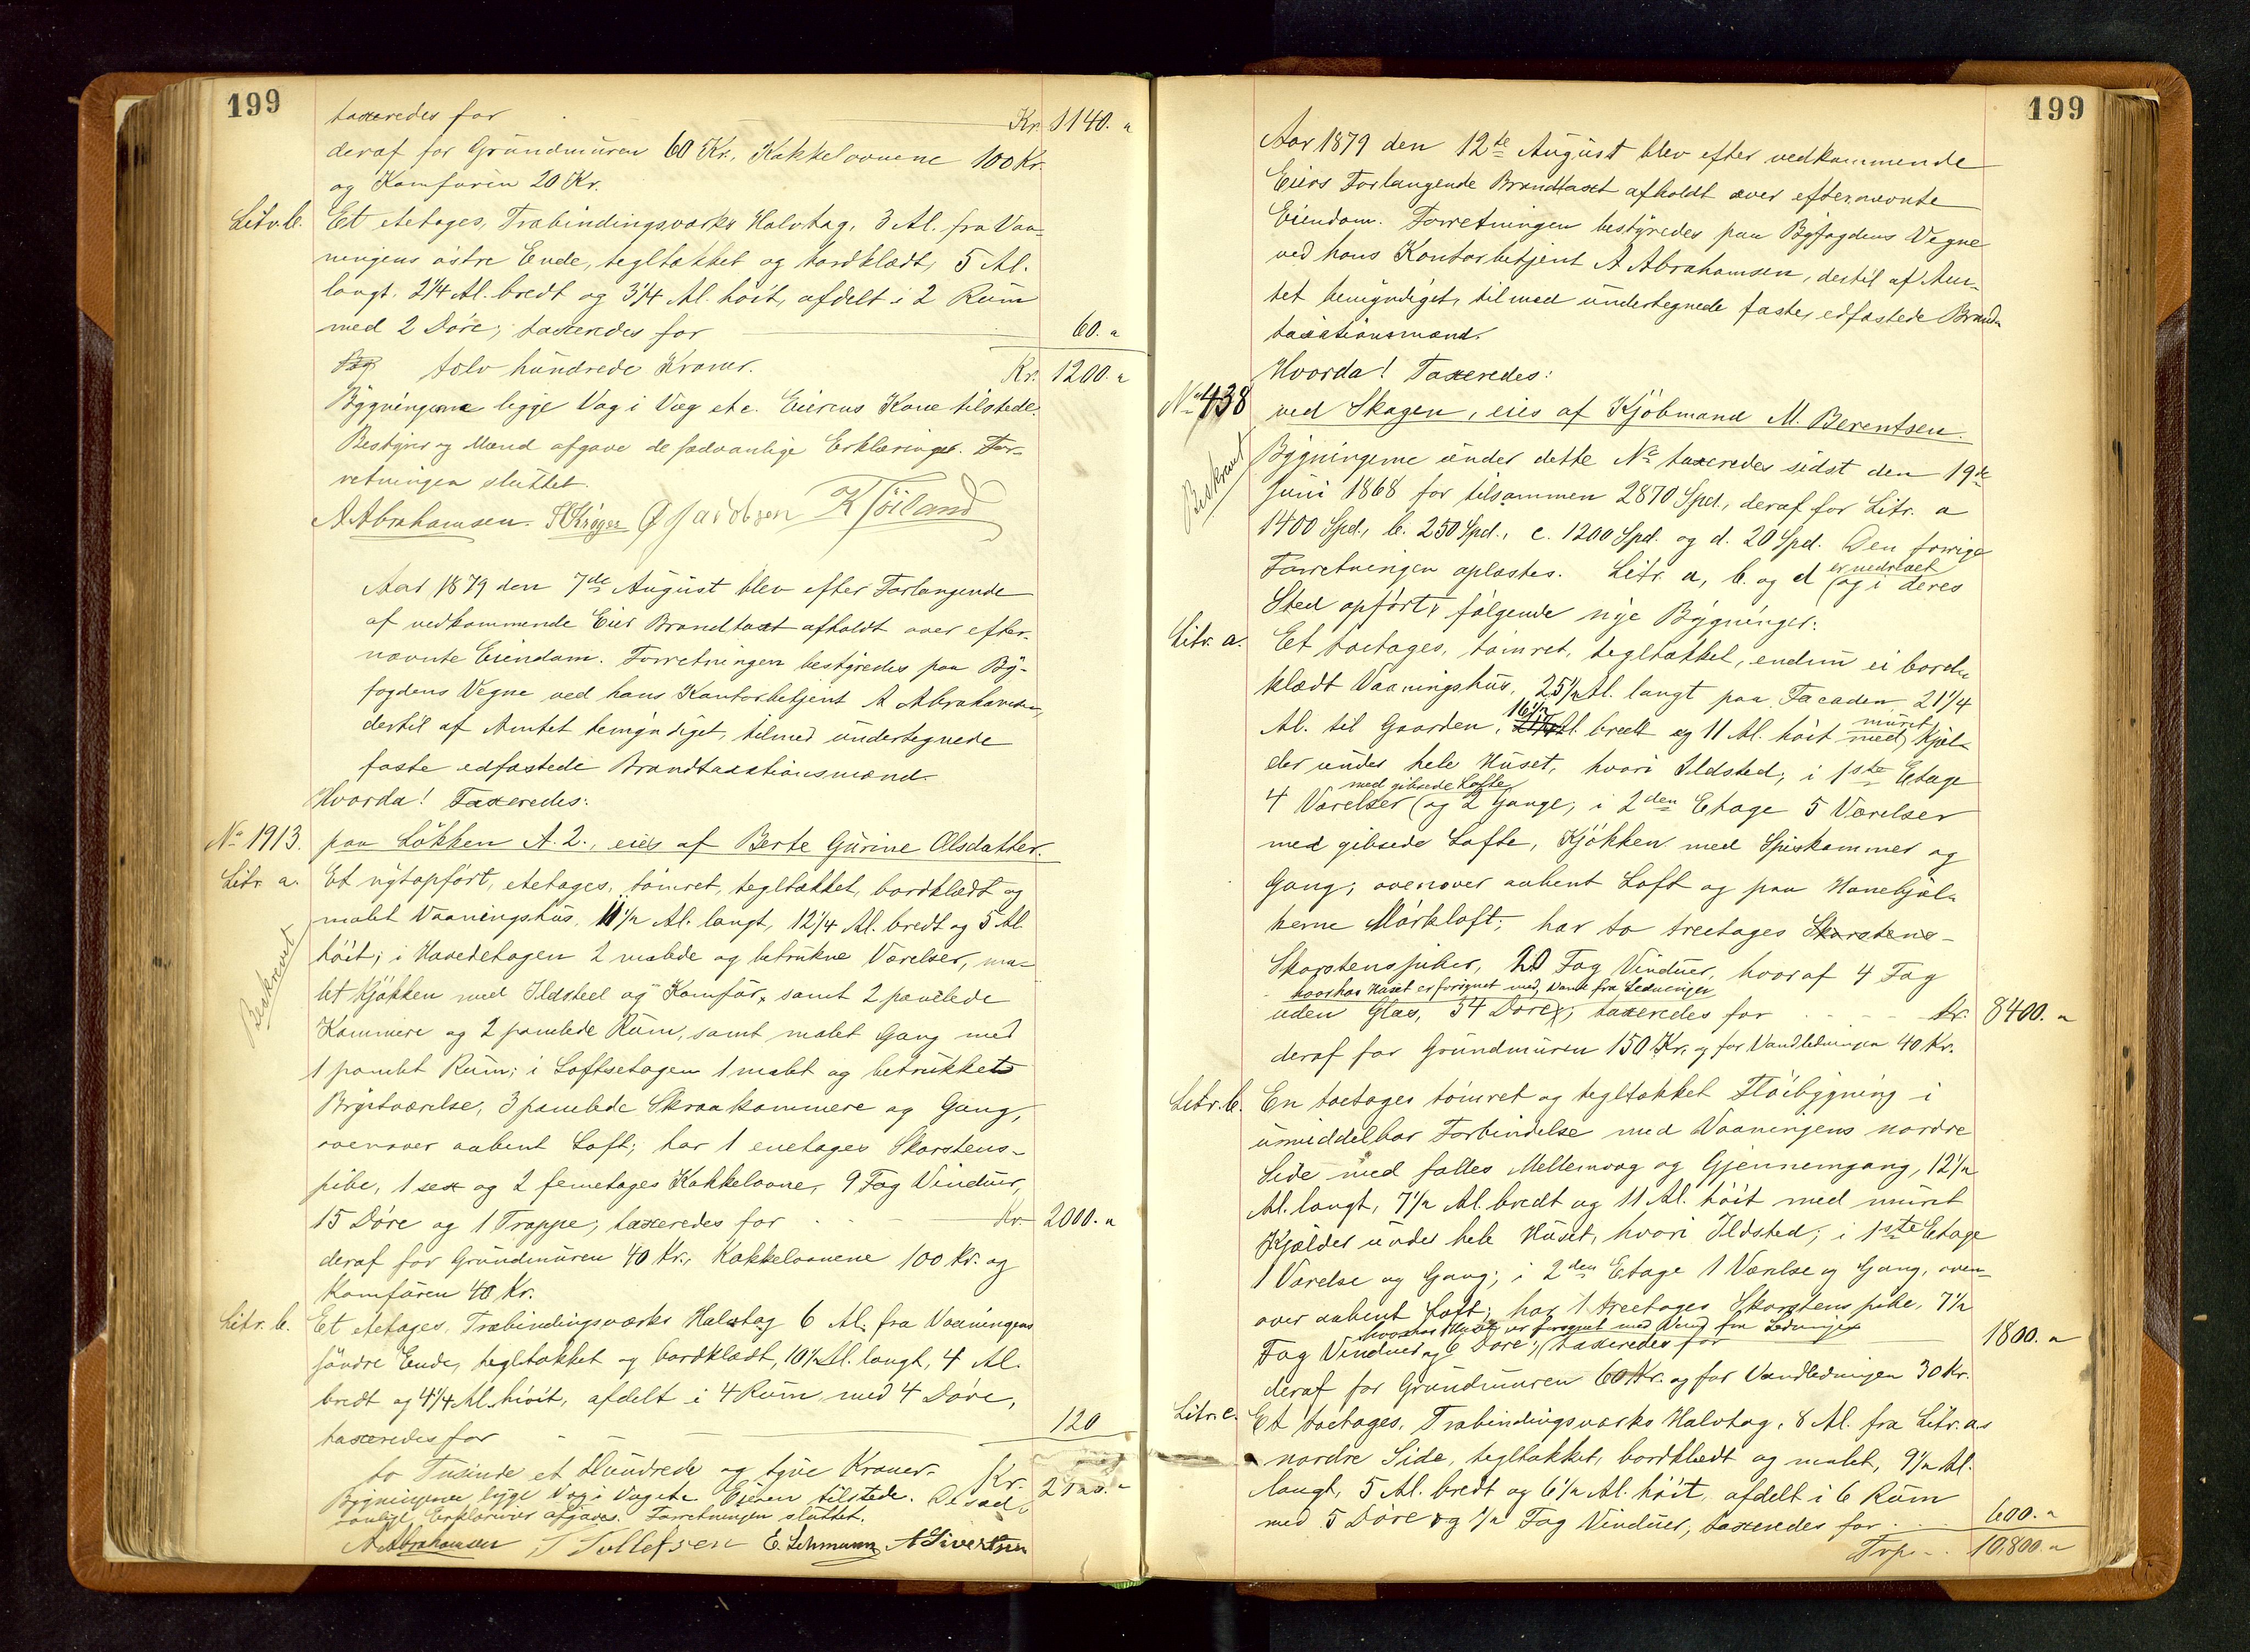 199
taxeredes for Kr. 1140. "
deraf for Grundmuren 60 Kr., Kakkelovnene 100 Kr.
og Komfuren 20 Kr.
Litr. b. Et etetages, Træbindingsværks Halvtag, 3 Al. fra Vaa-
ningens østre Ende, tegltækket og bordklædt, 5 Al.
langt, 2 1/4 Al. bredt og 3 1/4 Al. høit, afdelt i 2 Rum
med 2 Døre; taxeredes for 60. "
tolv hundrede Kroner. Kr. 1200. "
Bygningerne ligge Væg i Væg etc. Eierens Kone tilstede.
Bestyrer og Mænd afgave de sædvanlige Erklæringer. For-
retningen sluttet.
A Abrahamsen. Krøger Jacobsen K Tjöiland
Aar 1879 den 7de August blev efter Forlangende
af vedkommende Eier Brandtaxt afholdt over efter-
nævnte Eiendom. Forretningen bestyredes paa By-
fogdens Vegne ved hans Kontorbetjent A Abrahamsen,
dertil af Amtet bemyndiget, tilmed undertegnede
faste edfæstede Brandtaxationsmænd.
Hvorda! Taxeredes:
No 1913. paa Løkken A. 2., eies af Berte Gurine Olsdatter.
Litr. a. Et nytopført, etetages, tømret, tegltækket, bordklædt og
malet Vaaningshus, 11 1/2 Al. langt, 12 1/4 Al. bredt og 5 Al.
Beskrevet
høit; i Hovedetagen 2 malede og betrukne Værelser, ma-
let Kjøkken med Ildsted og Komfur, samt 2 panelede
Kammere og 2 panelede Rum, samt malet Gang med
1 panelet Rum; i Loftsetagen 1 malet og betrukket
Brystværelse, 3 panelede Skraakammere og Gang,
ovenover aabent Loft; har 1 enetages Skorstens-
pibe, 1 sex og 2 femetages Kakkelovne, 9 Fag Vinduer,
15 Døre og 1 Trappe; taxeredes for Kr. 2000. "
deraf for Grundmuren 40 Kr., Kakkelovnene 100 Kr. og
Komfuren 40 Kr.
Litr. b. Et etetages, Træbindingsværks Halvtag 6 Al. fra Vaaningens
søndre Ende, tegltækket og bordklædt, 10 1/2 Al. langt, 4 Al.
bredt og 4 1/4 Al. høit, afdelt i 4 Rum med 4 Døre,
taxeredes for 120
to Tusinde et Hundrede og tyve Kroner. Kr. 2120. "
Bygningerne ligge Væg i Væg etc. Eieren tilstede. De sæd-
vanlige Erklæringer afgaves. Forretningen sluttet.
A Abrahamsen T Tollefsen E. Lehmann A Sivertsen
199
Aar 1879 den 12te August blev efter vedkommende
Eiers Forlangende Brandtaxt afholdt over efternævnte
Eiendom. Forretningen bestyredes paa Byfogdens Vegne
ved hans Kontorbetjent A Abrahamsen, dertil af Am-
tet bemyndiget, tilmed undertegnede faste, edfæstede Brand-
taxationsmænd.
Hvorda! Taxeredes:
No 438 ved Skagen, eies af Kjøbmand M. Berentsen.
Beskrevet
Bygningerne under dette No taxeredes sidst den 19de
Juni 1868 for tilsammen 2870 Spd., deraf for Litr. a
1400 Spd., b. 250 Spd., c. 1200 Spd. og d. 20 Spd. Den forrige
Forretningen oplæstes. Litr. a, b. og d er nedrevet og i deres
Sted opført følgende nye Bygninger:
Litr. a. Et toetages, tømret, tegltækket, endnu ei bord-
klædt Vaaningshus, 25 1/2 Al. langt paa Facaden, 21 1/4
Al. til Gaarden, 16 1/2 Al. bredt og 11 Al. høit med muret Kjæl-
der under hele Huset, hvori Ildsted; i 1ste Etage
4 Værelser med gibsede Lofte og 2 Gange; i 2den Etage 5 Værelser
med gibsede Lofte, Kjøkken med Spiskammer og
Gang; ovenover aabent Loft og paa Hanebjæl-
kerne Mørkloft; har to treetages Skorstens-
Skorstenspiber, 20 Fag Vinduer, hvoraf 4 Fag
hvorhos Huset er forsynet med Vand fra Ledningen
uden Glas, 34 Døre; taxeredes for Kr. 8400. "
deraf for Grundmuren 150 Kr. og for Vandledningen 40 Kr.
Litr. b. En toetages tømret og tegltækket Fløibygning i
umiddelbar Forbindelse med Vaaningens nordre
Side med fælles Mellemvæg og Gjennemgang, 12 1/2
Al. langt, 7 1/2 Al. bredt og 11 Al. høit med muret
Kjælder under hele Huset, hvori Ildsted; i 1ste Etage
1 Værelse og Gang; i 2den Etage 1 Værelse og Gang, oven-
over aabent Loft; har 1 treetages Skorstenspibe, 7 1/2
hvorhos Huset er forsynet med Vand fra Ledningen
Fag Vinduer og 6 Døre; taxeredes for 1800. "
deraf for Grundmuren 60 Kr. og for Vandledningen 30 Kr.
Litr. c. Et toetages, Træbindingsværks Halvtag, 8 Al. fra Litr. a.s
nordre Side, tegltækket, bordklædt og malet, 9 1/2 Al.
langt, 5 Al. bredt og 6 1/2 Al. høit, afdelt i 6 Rum
med 5 Døre og 1/2 Fag Vinduer, taxeredes for 600. "
Trp. 10,800. "